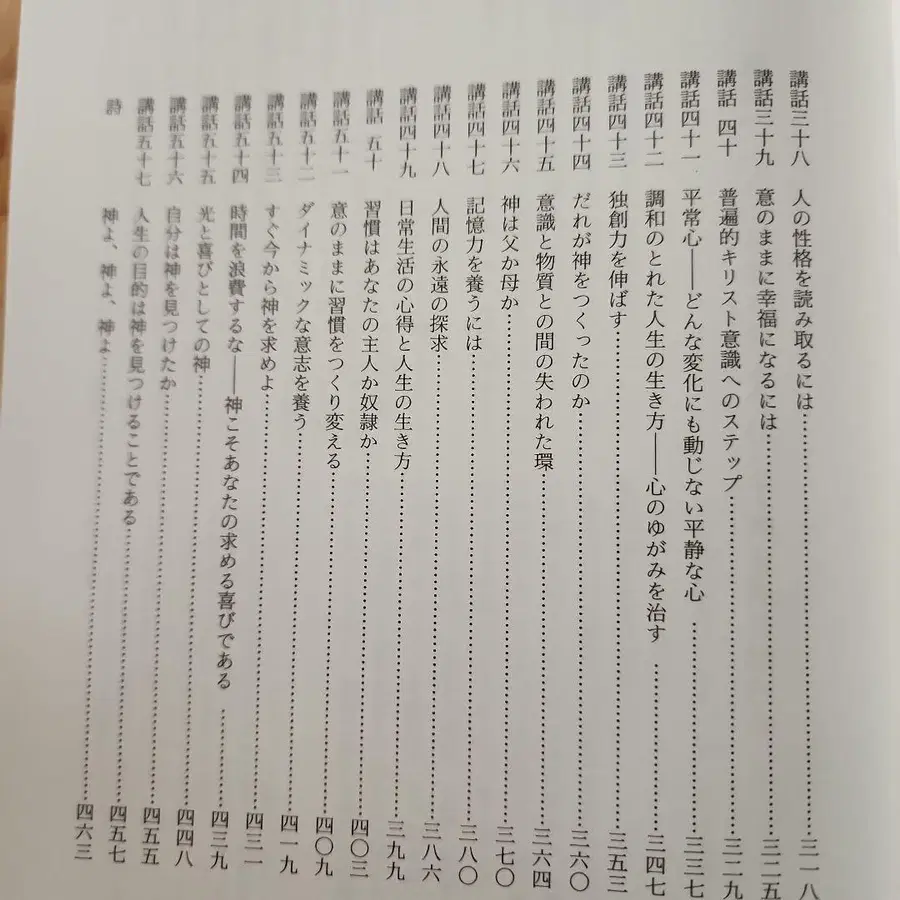 講話三十八 人の性格を読み取るには……三一八
講話三十九 意のままに幸福になるには……三二五
講話 四十 普遍的キリスト意識へのステップ……三二九
講話四十一 平常心――どんな変化にも動じない平静な心……三三七
講話四十二 調和のとれた人生の生き方――心のゆがみを治す……三四七
講話四十三 独創力を伸ばす……三五三
講話四十四 だれが神をつくったのか……三六〇
講話四十五 意識と物質との間の失われた環……三六四
講話四十六 神は父か母か……三七〇
講話四十七 記憶力を養うには……三八〇
講話四十八 人間の永遠の探求……三八六
講話四十九 日常生活の心得と人生の生き方……三九九
講話 五十 習慣はあなたの主人か奴隷か……四〇三
講話五十一 意のままに習慣をつくり変える……四〇九
講話五十二 ダイナミックな意志を養う……四一九
講話五十三 すぐ今から神を求めよ……四三一
講話五十四 時間を浪費するな――神こそあなたの求める喜びである……四三九
講話五十五 光と喜びとしての神……四四八
講話五十六 自分は神を見つけたか……四五五
講話五十七 人生の目的は神を見つけることである……四五七
詩 神よ、神よ、神よ……四六三